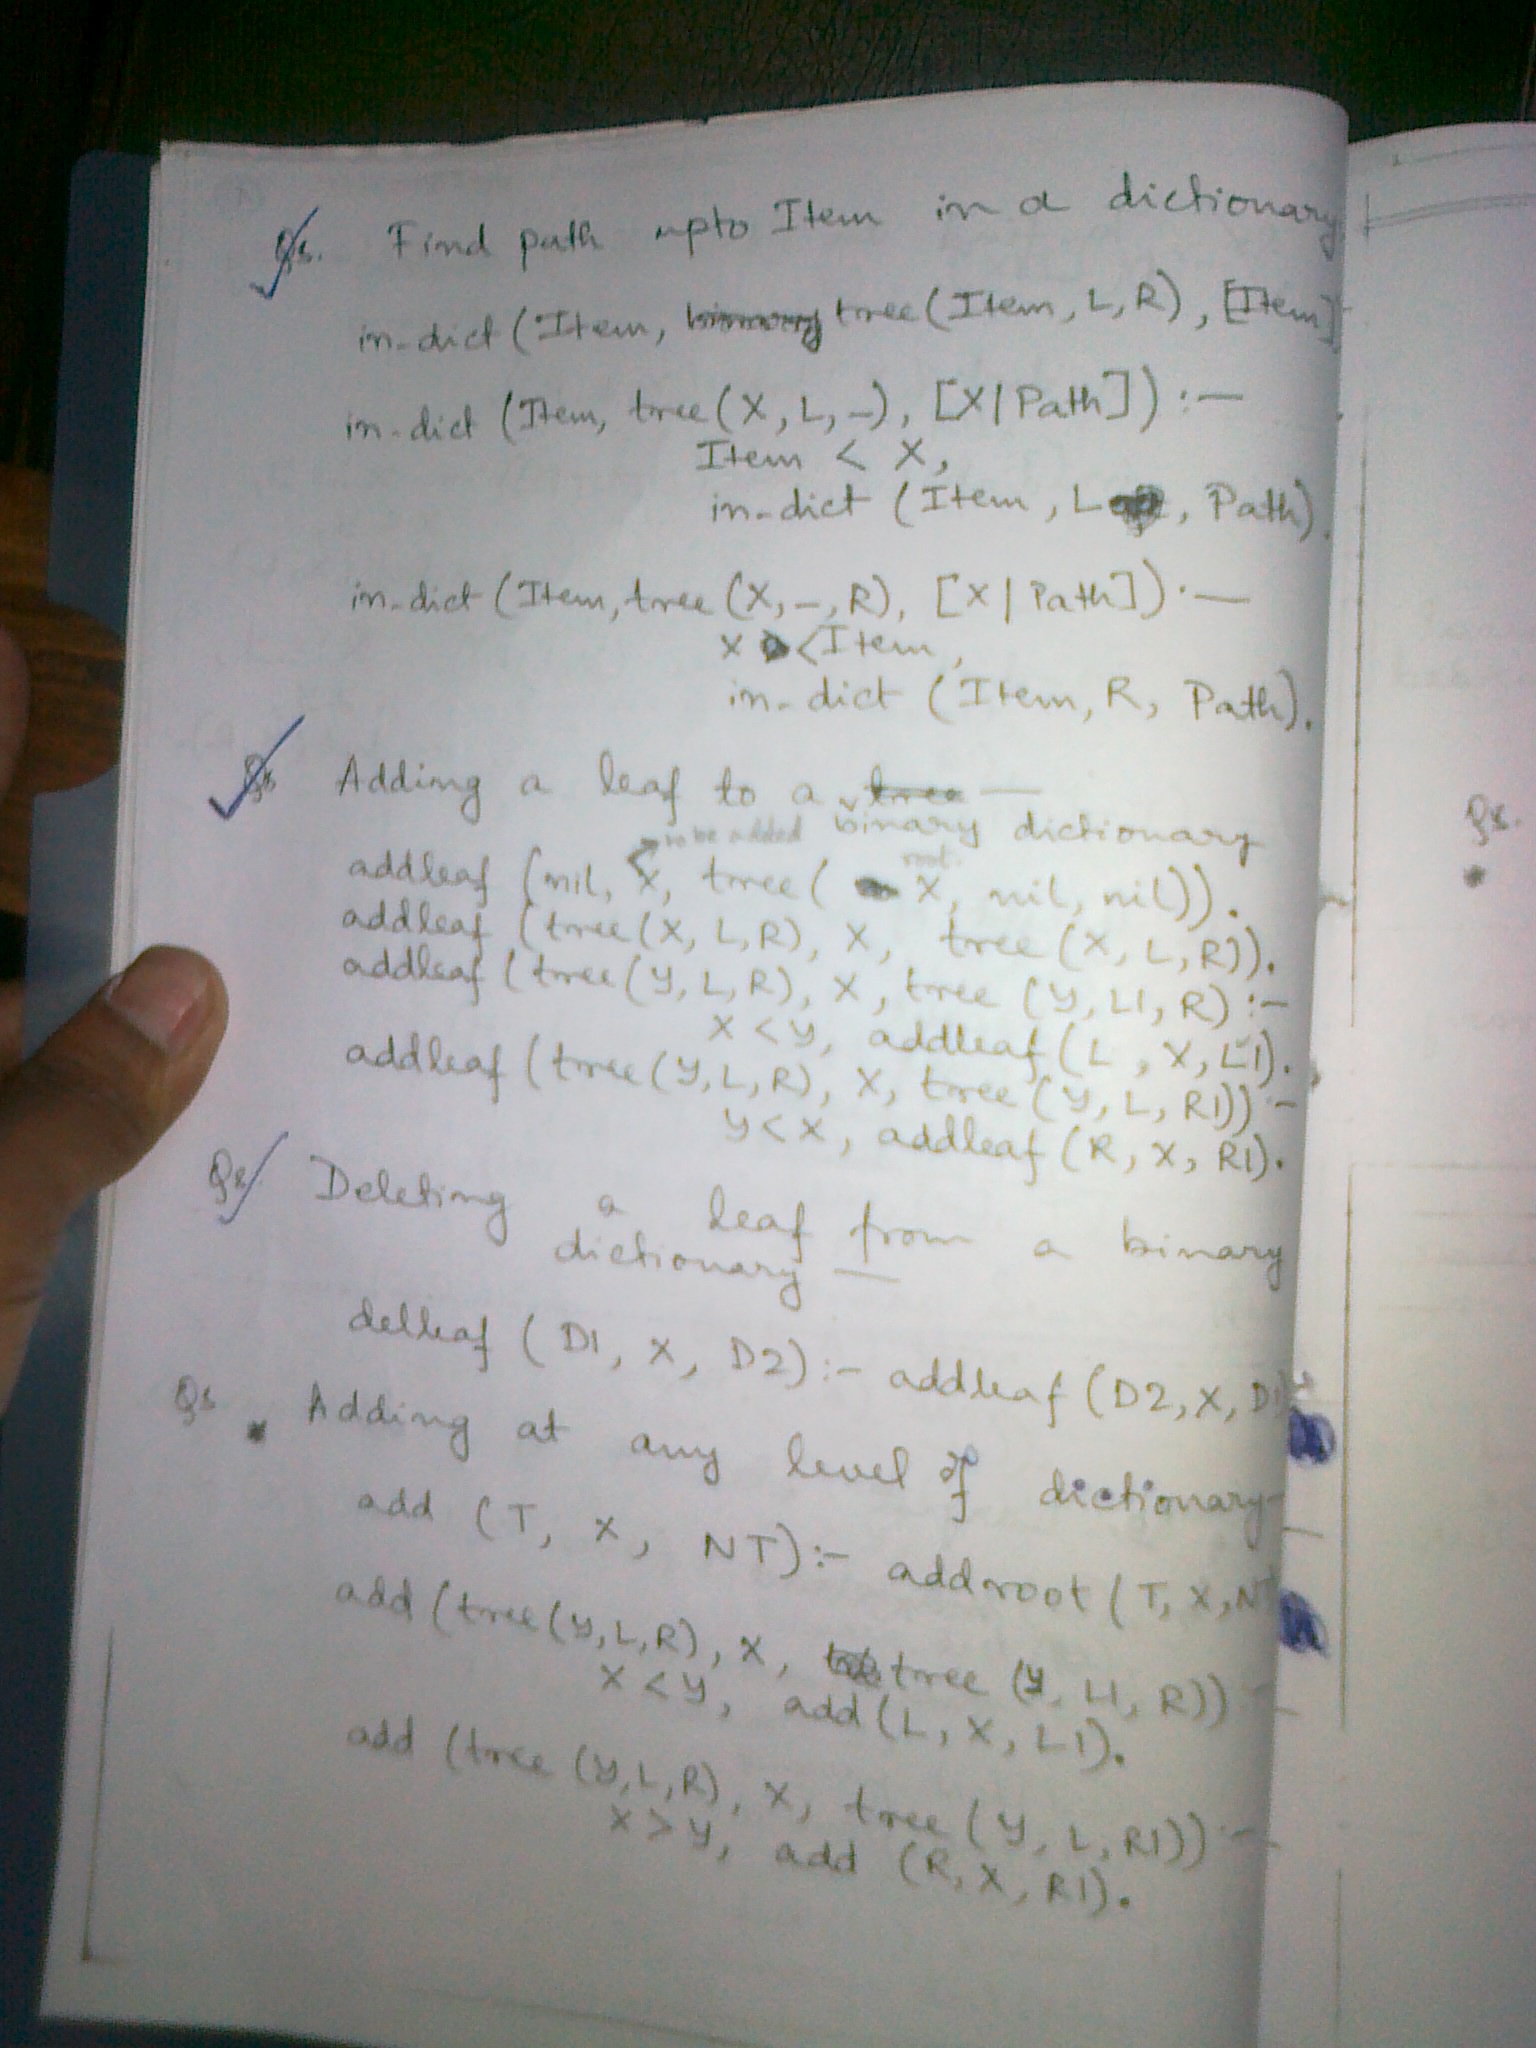 Qs. Find path upto Item in a dictionary
in-dict (Item, tree (Item, L, R), [Item]
in-dict (Item, tree (X, L, _), [X | Path]) :-
Item < X,
in-dict (Item, L, Path).
in-dict (Item, tree (X, _, R), [X | Path]) :-
X < Item,
in-dict (Item, R, Path).
Qs Adding a leaf to a tree -
binary dictionary
to be added
root.
addleaf (nil, X, tree ( X, nil, nil)).
addleaf (tree (X, L, R), X, tree (X, L, R)).
addleaf (tree (Y, L, R), X, tree (Y, L1, R) :-
X < Y, addleaf (L, X, L1).
addleaf (tree (Y, L, R), X, tree (Y, L, R1)) -
Y < X, addleaf (R, X, R1).
Qs Deleting a leaf from a binary
dictionary -
delleaf (D1, X, D2) :- addleaf (D2, X, D1
Qs. Adding at any level of dictionary-
add (T, X, NT) :- addroot (T, X, N
add (tree (Y, L, R), X, tree (Y, L1, R)) -
X < Y, add (L, X, L1).
add (tree (Y, L, R), X, tree (Y, L, R1)) :-
X > Y, add (R, X, R1).
Qs.